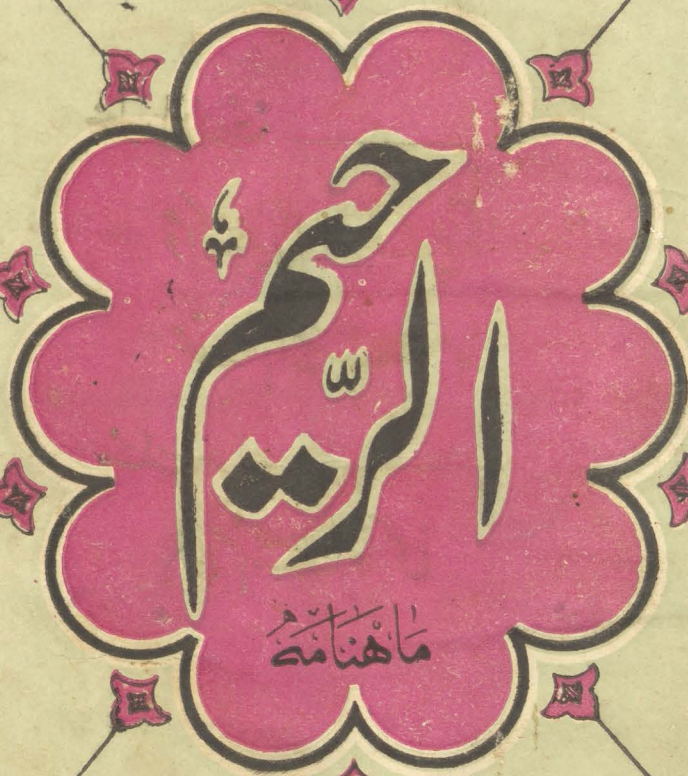 الرّحیم
ماہنامہ